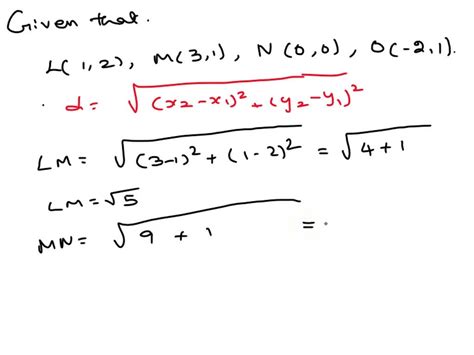 Given that.
L(1,2), M(3,1), N(0,0), O(-2,1).
. d= √(x2-x1)²+(y2-y1)²
LM= √(3-1)²+(1-2)² = √4+1
LM=√5
MN= √9 + 1 =